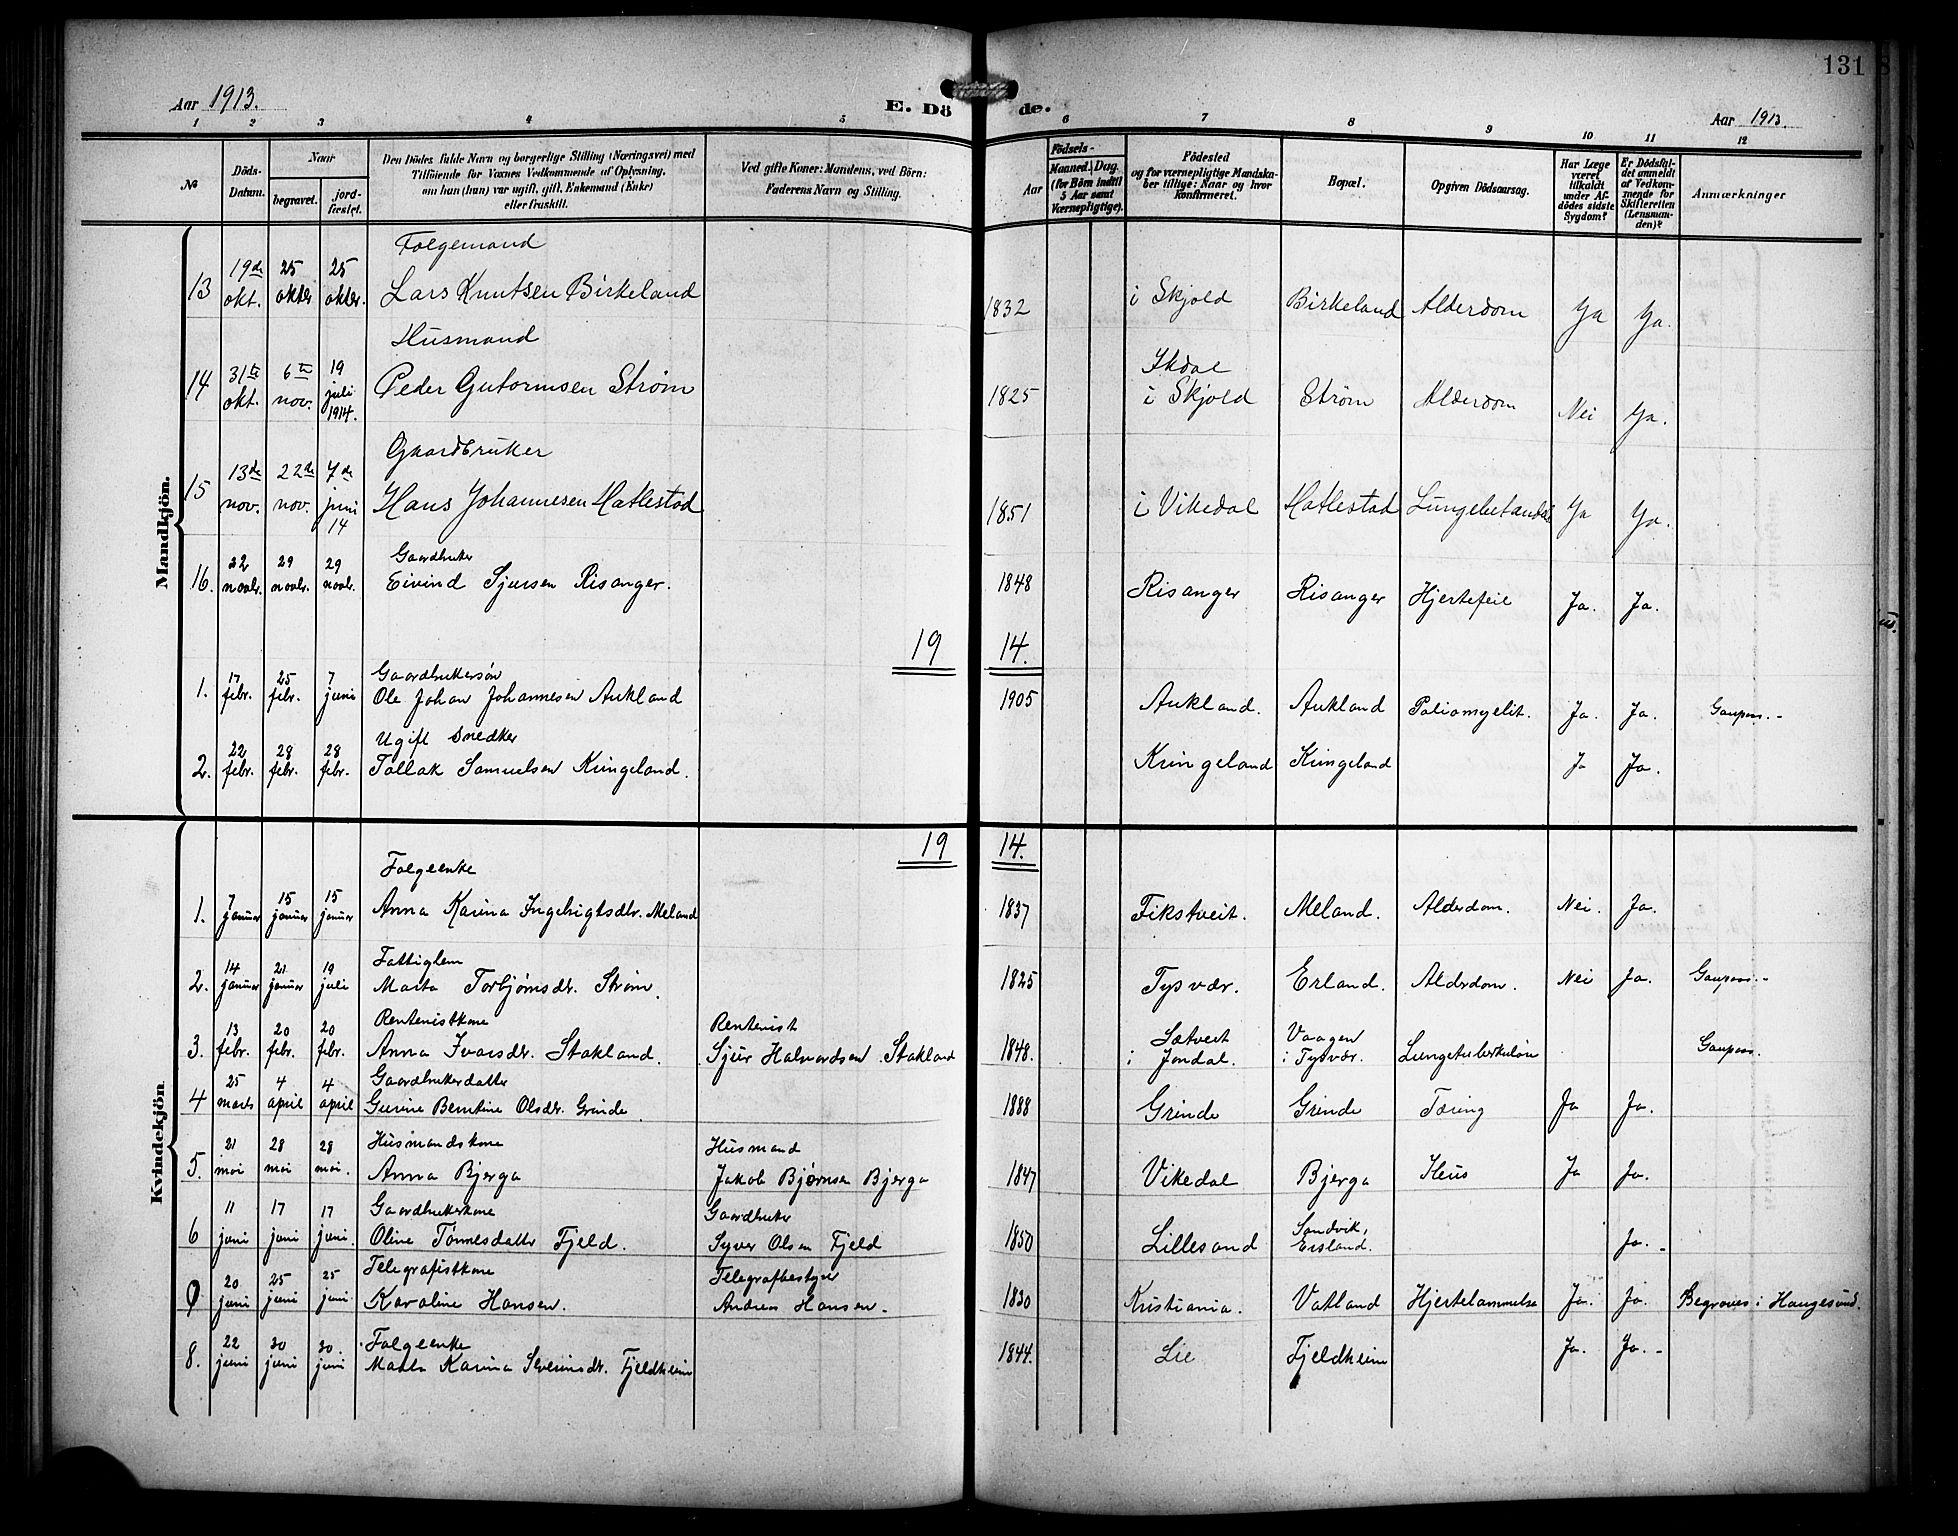 131
Aar 1913.
E. Dö de.
Aar 1913.
1 2 3 4 5 6 7 8 9 10 11 12
No
Döds-Datum.
Naar
begravet.
jord-fæstet.
Den Dödes fulde Navn og borgerlige Stilling (Næringsvei) med
Tilföiende for Voxnes Vedkommende af Oplysning,
om han (hun) var ugift, gift, Enkemand (Enke)
eller fraskilt.
Ved gifte Koner: Mandens, ved Börn:
Faderens Navn og Stilling.
Födsels-
Aar
Maaned. Dag.
(for Börn indtil
5 Aar samt
Værnepligtige).
Födested
og for værnepligtige Mandska-
ber tillige: Naar og hvor
Konfirmeret.
Bopæl.
Opgiven Dödsaarsag.
Har Læge
været
tilkaldt
under Af-
dödes sidste
Sygdom?
Er Dödsfal-
det anmeldt
af Vedkom-
mende for
Skifteretten
(Lensman-
den)?
Anmærkninger
Mandkjön.
Folgemand
13 19de okt. 25 oktbr 25 oktbr. Lars Knutsen Birkeland 1832 i Skjold Birkeland Alderdom Ja Ja.
Husmand
14 31te okt. 6te nov. 19 juli 1914. Peder Gutormsen Strøm 1825 i Skjold Strøm Alderdom Nei Ja.
Gaardbruker
15 13de nov. 22de nov. 7de juni 14 Hans Johannesen Hatlestad 1851 i Vikedal Hatlestad Ja Ja.
Gaardbruker
16. 22 novbr. 29 novbr. 29 novbr. Eivind Sjursen Risanger. 1848 Risanger Risanger Hjertefeil Ja. Ja.
19 14.
Gaardbrukersøn
1. 17 febr. 25 febr. 7 juni Ole Johan Johannesen Aukland 1905 Aukland. Aukland Poliomyelit. Ja. Ja. Gaupaas.-
Ugift Snedker
2. 22 febr. 28 febr. 28 febr. Tollak Samuelsen Kringeland. Kringeland Kringeland Ja Ja.
Kvindekjön
19 14.
Folgeenke
1. 7 januar 15 januar 15 januar Anna Karina Ingebrigtsdtr. Meland 1837 Fikstveit. Meland. Alderdom. Nei. Ja.
Fattiglem
2. 14 januar 21 januar 19 juli Marta Torbjørnsdtr. Strøm. 1825 Tysvær. Erland. Alderdom. Nei Ja. Gaupaas.-
Rentenistkone Rentenist
3. 13 febr. 20 febr. 20 febr. Anna Ivarsdtr. Stakland. Sjur Halvordsen Stakland 1848. Sætveit i Jondal. Vaagen i Tysvær. Lungetuberkuløse Gaupaas.
Gaardbrukerdatter
4 25 marts 4 april 4 april Gurine Berntine Olsdtr. Grinde 1888 Grinde Grinde Tæring Ja Ja.
Husmandskone Husmand
5. 21 mai 28 mai 28 mai. Anna Bjerga Jakob Bjørnsen Bjerga 1847 Vikedal Bjerga Ileus Ja Ja.
Gaardbrukerkone Gaardbruker
6 11 juni 17 juni 17 juni. Oline Tønnesdatter Fjeld. Syver Olsen Fjeld 1850 Lillesand Sandvik, Ersland. Ja.-
Telegrafistkone Telegrafbestyrer
7 20 juni 25 juni 25 juni. Karoline Hansen. Andreas Hansen.- 1830 Kristiania. Vatland Hjertelammelse Ja. Ja. Begraves i Haugesund.
Folgeenke
8. 22 juni 30 juni 30. juni Marta Karina Severinsdtr. Fjeldheim 1844. Lie Fjeldheim Ja. Ja.-